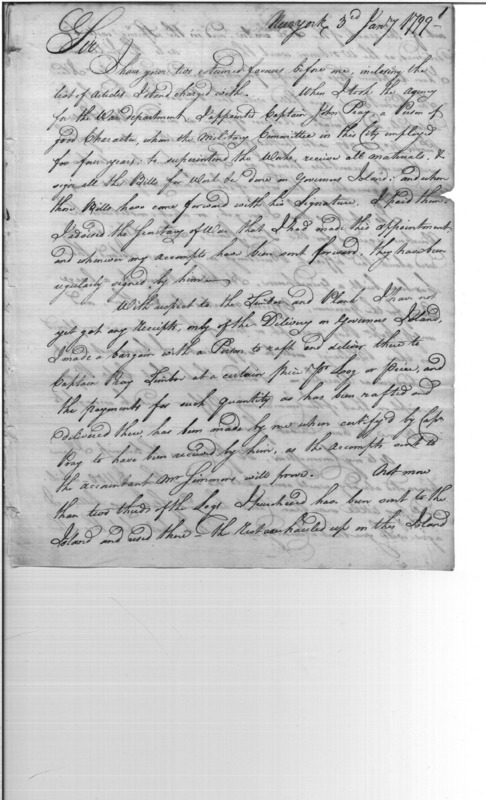 New York 3d Jany 1799
Sir
I have your two esteemed favours before me, inclosing the
list of Articles I stand charged with. When I took the Agency
for the War department I appointed Captain John Pray, a Person of
good Character, whom the Military Committee in this City employed
for four years, to superintend the Works, receive all materials, &
sign all the Bills for Work to be done on Governors Island, and when
those Bills have come forward with his Signature, I paid them.
I advised the Secretary of War that I had made this appointment
and whenever my accompts have been sent forward, they have been
regularly signed by him
With respect to the Timber and Plank I have not
yet got any Receipts, only of the Delivery on Governors Island,
I made a bargain with a Person to raft and deliver there to
Captain Pray Timber at a certain price Pr Log or piece, and
the payments for such quantity as has been rafted and
delivered there, has been made by me when certify'd by Capn
Pray to have been received by him, as the Accompts sent to
the accountant Mr Simmons will prove. Not more
than two thirds of the Logs I purchased has been sent to the
Island and used there - the Rest are hauled up on this Island